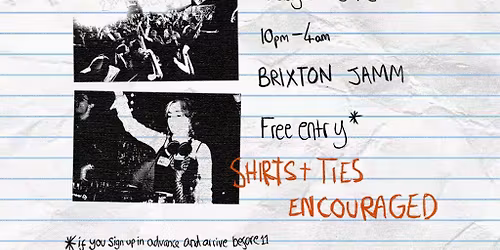 10pm-4am
BRIXTON JAMM
Free entry*
SHIRTS + TIES
ENCOURAGED
*if you sign up in advance and arrive before 11